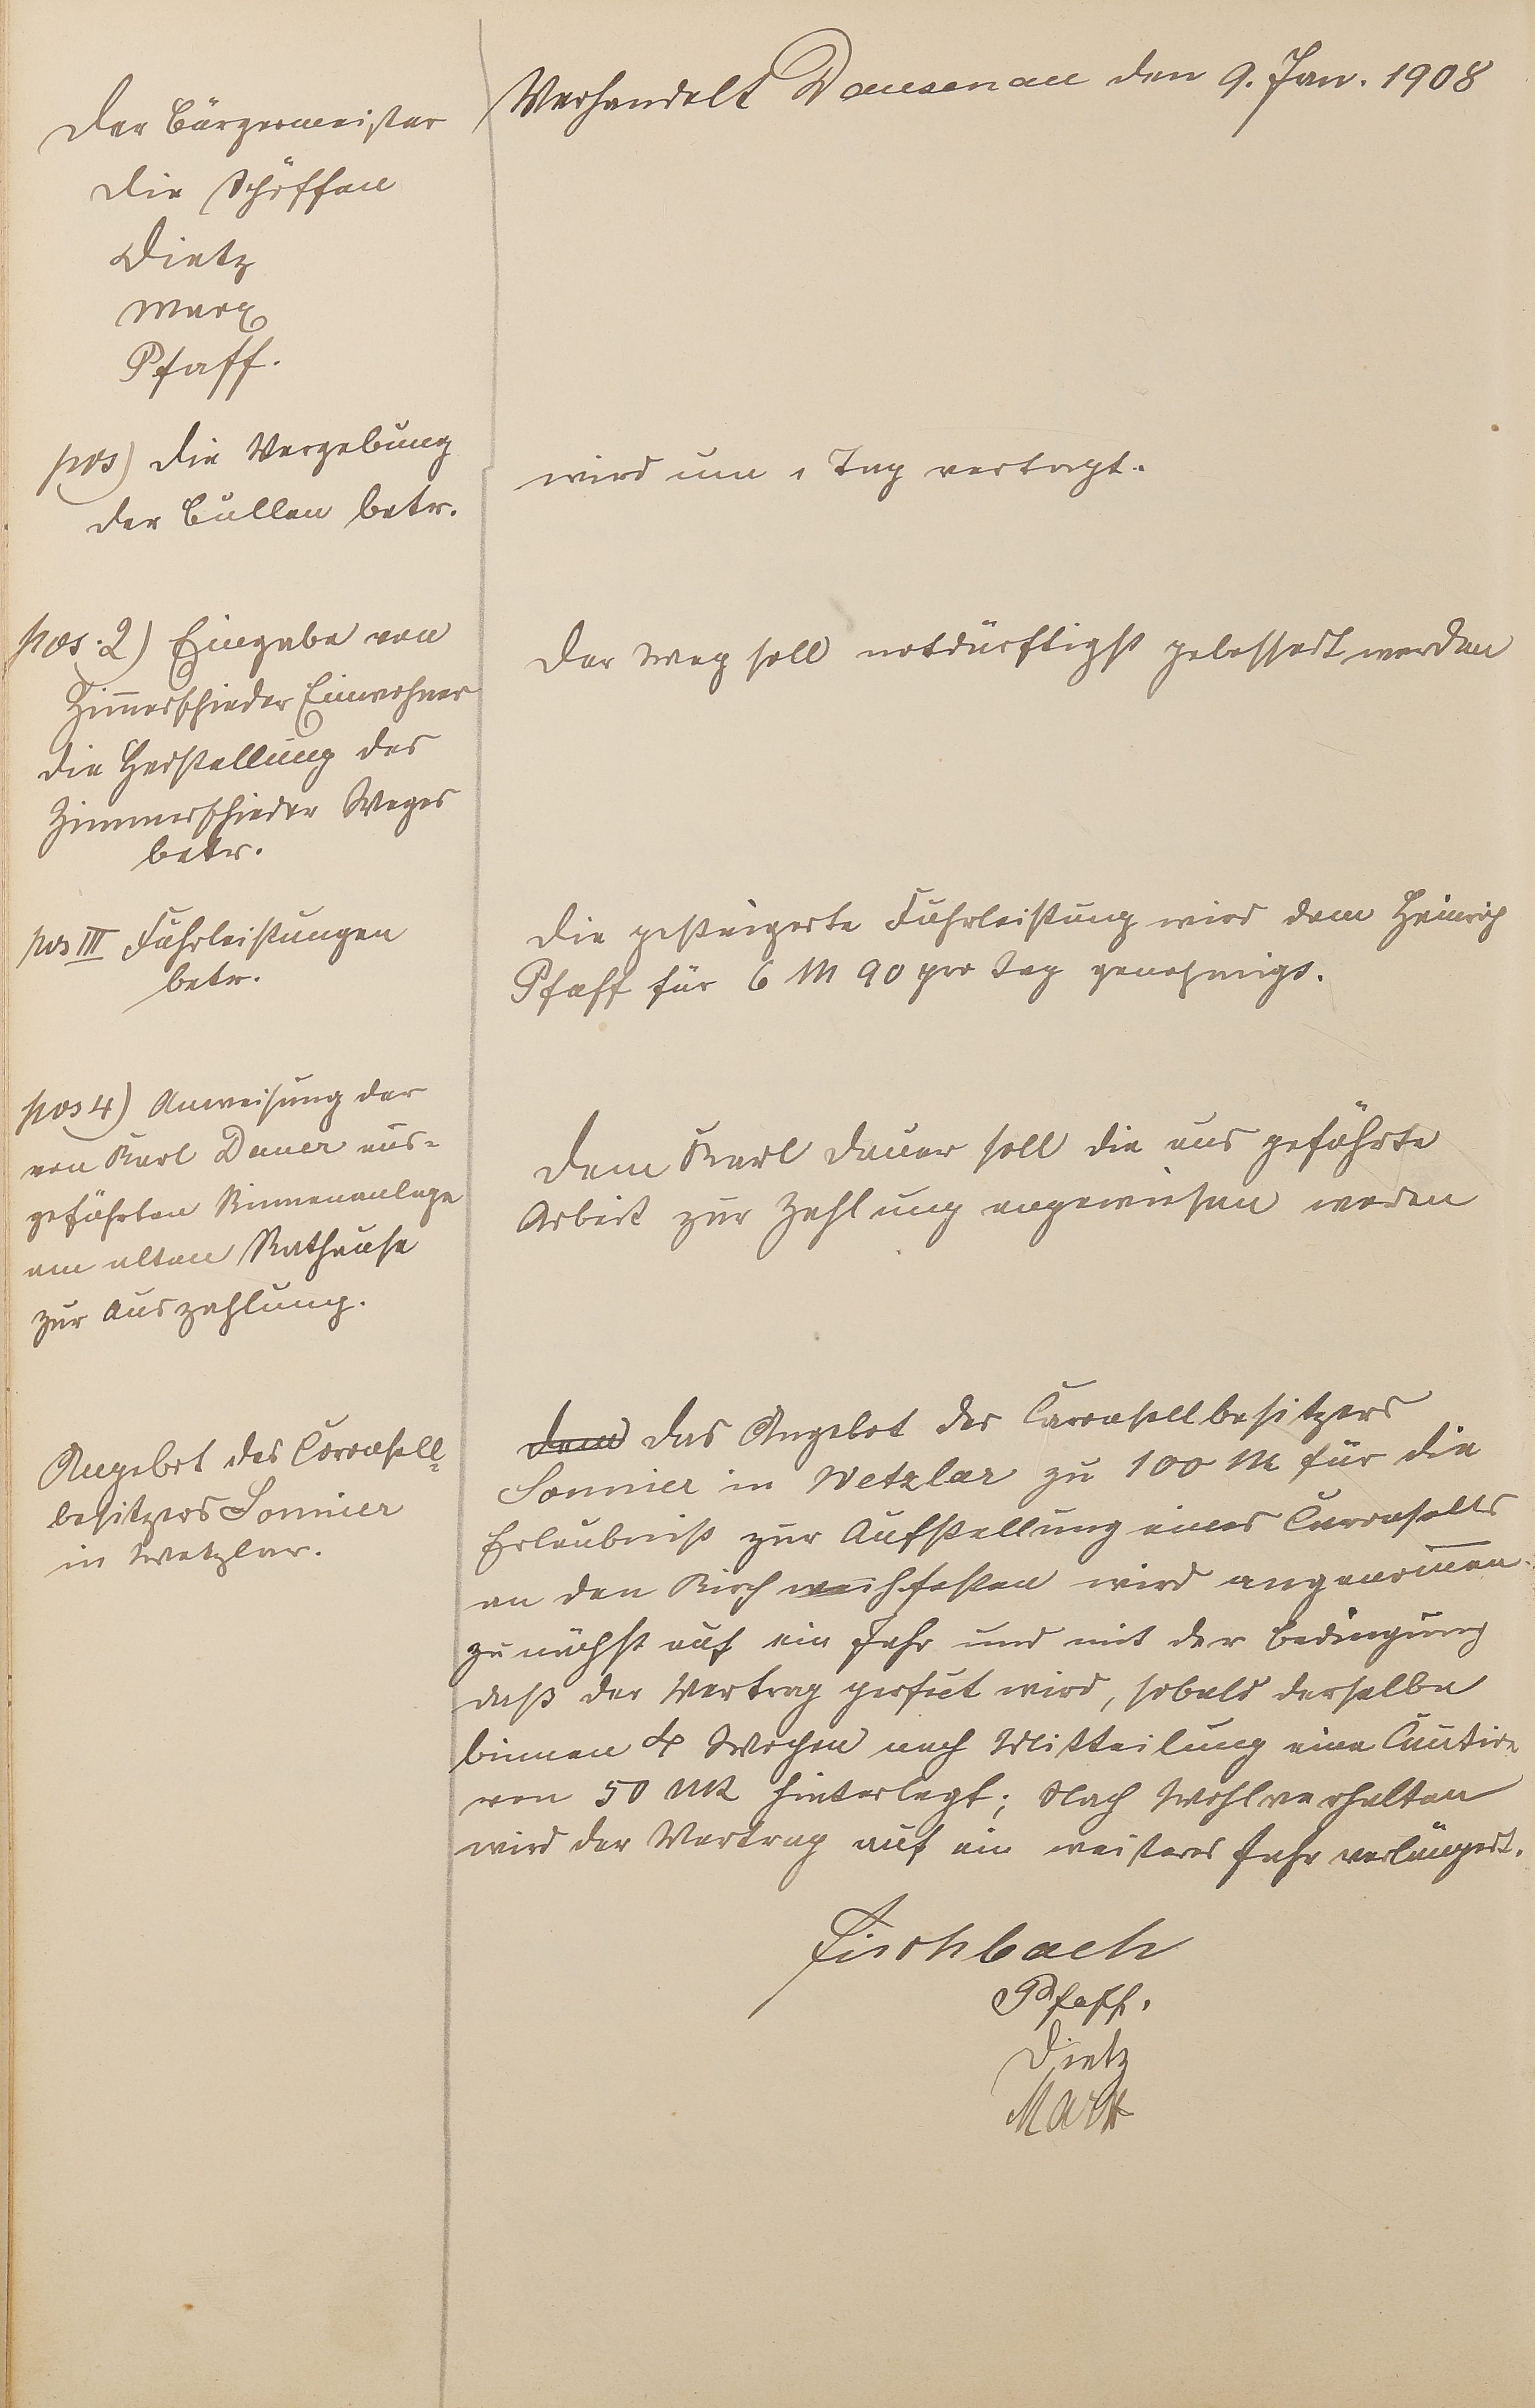 Verhandelt Dausenau den 9. Jan. 1908
Der Bürgermeister
die Schöffen
Dietz
Marx
Pfaff.
pos) die Vergebung
der Bullen betr.
wird um 1 Tag vertagt.
pos. 2) Eingabe von
Zim̅erschieder Einwohner
die Herstellung des
Zimmerschieder Weges
betr.
Der Weg soll notdürftigst gebessert werden
pos III Fuhrleistungen
betr.
Die gesteigerte Fuhrleistung wird dem Heinrich
Pfaff für 6 M 90 pro Tag genehmigt.
pos 4) Anweisung der
von Karl Dauer aus-
geführten Rinnenanlage
am alten Rathause
zur Auszahlung.
Dem Karl Dauer soll die aus geführte
Arbeit zur Zahlung angewiesen weren
Angebot des Carousell-
besitzers Sonnier
in Wetzlar.
dem das Angebot des Carousellbesitzers
Sonnier in Wetzlar zu 100 M für die
Erlaubniß zur Aufstellung eines Carousells
an den Kirchweihfesten wird angenom̅en.
zunächst auf ein Jahr und mit der Bedingung
daß der Vertrag perfect wird, sobald derselbe
binnen 4 Wochen nach Mitteilung eine Caution
von 50 Mk hinterlegt; Nach Wohlverhalten
wird der Vertrag auf ein weiteres Jahr verlängert.
Fischbach
Pfaff.
Dietz
Marx